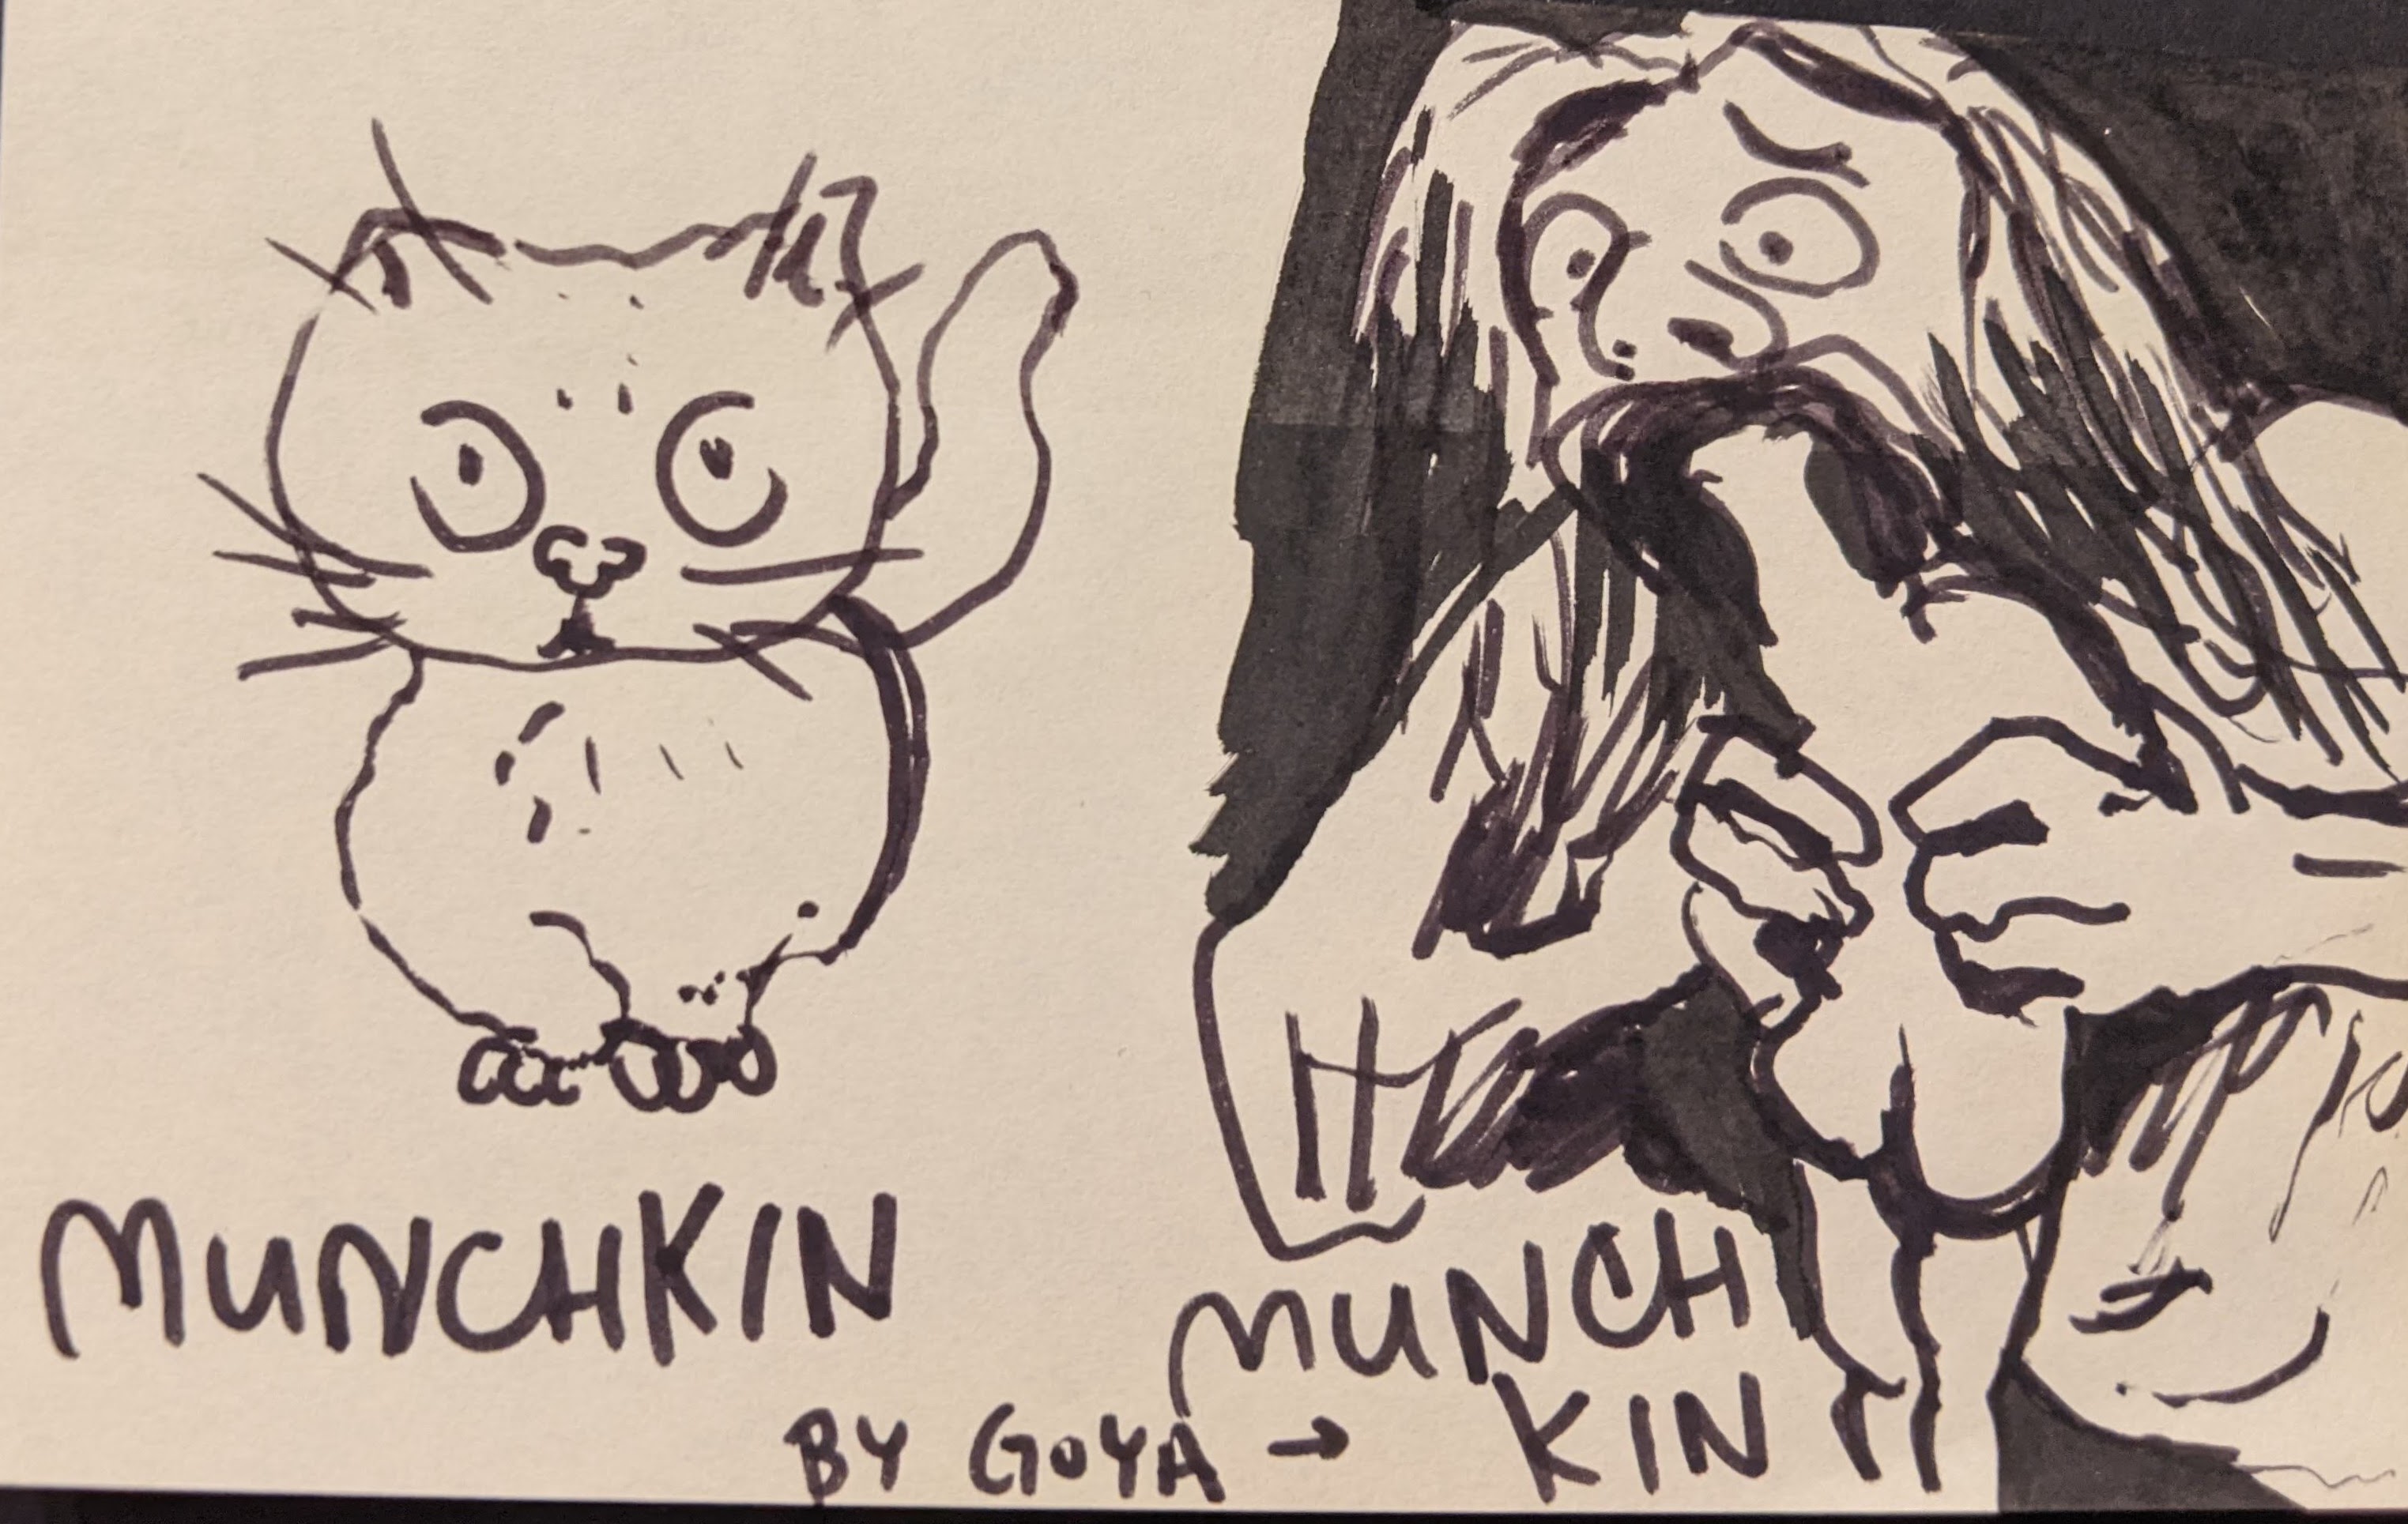 MUNCHKIN
MUNCH
KIN
BY GOYA →